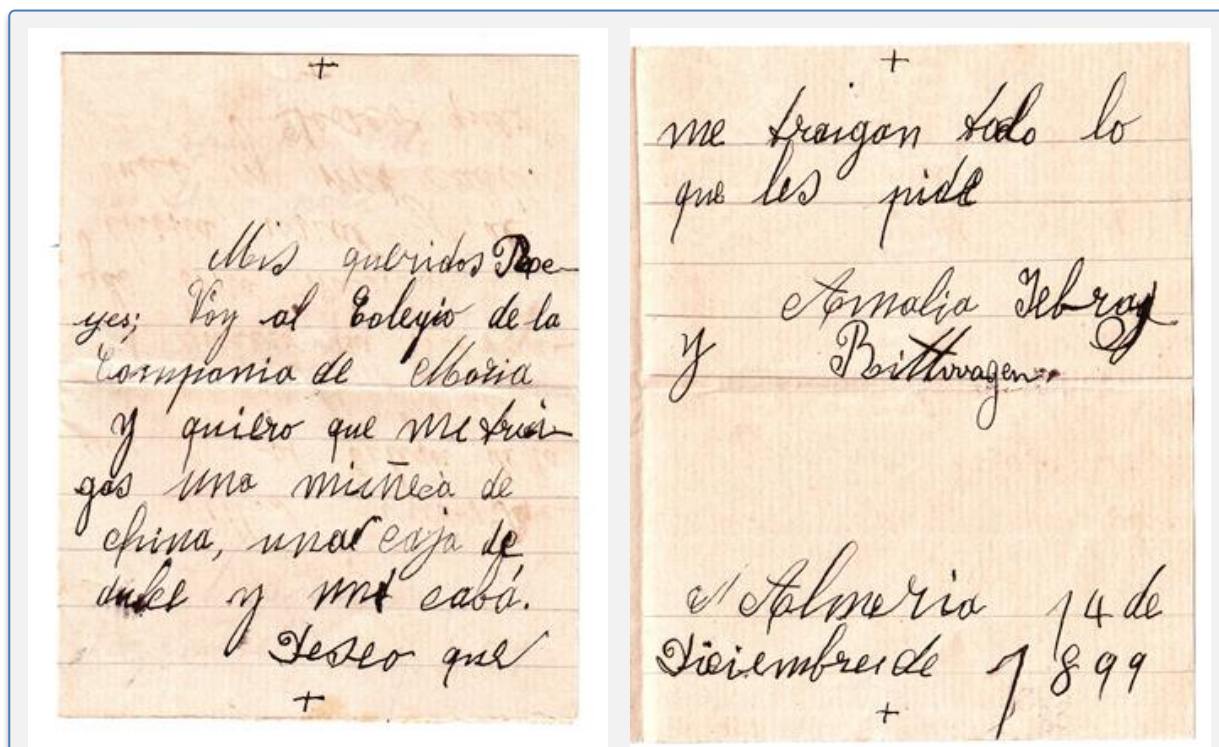 +
Mis queridos Re-
yes; Voy al Colegio de la
Compania de Maria
y quiero que me trai-
gas una muñeca de
china, una caja de
dulce y una cabá.
Deseo que
+
+
me traigan todo lo
que les pide
Amalia Iebray
y Bittwagen.
Almeria 14 de
Diciembre de 1899
+